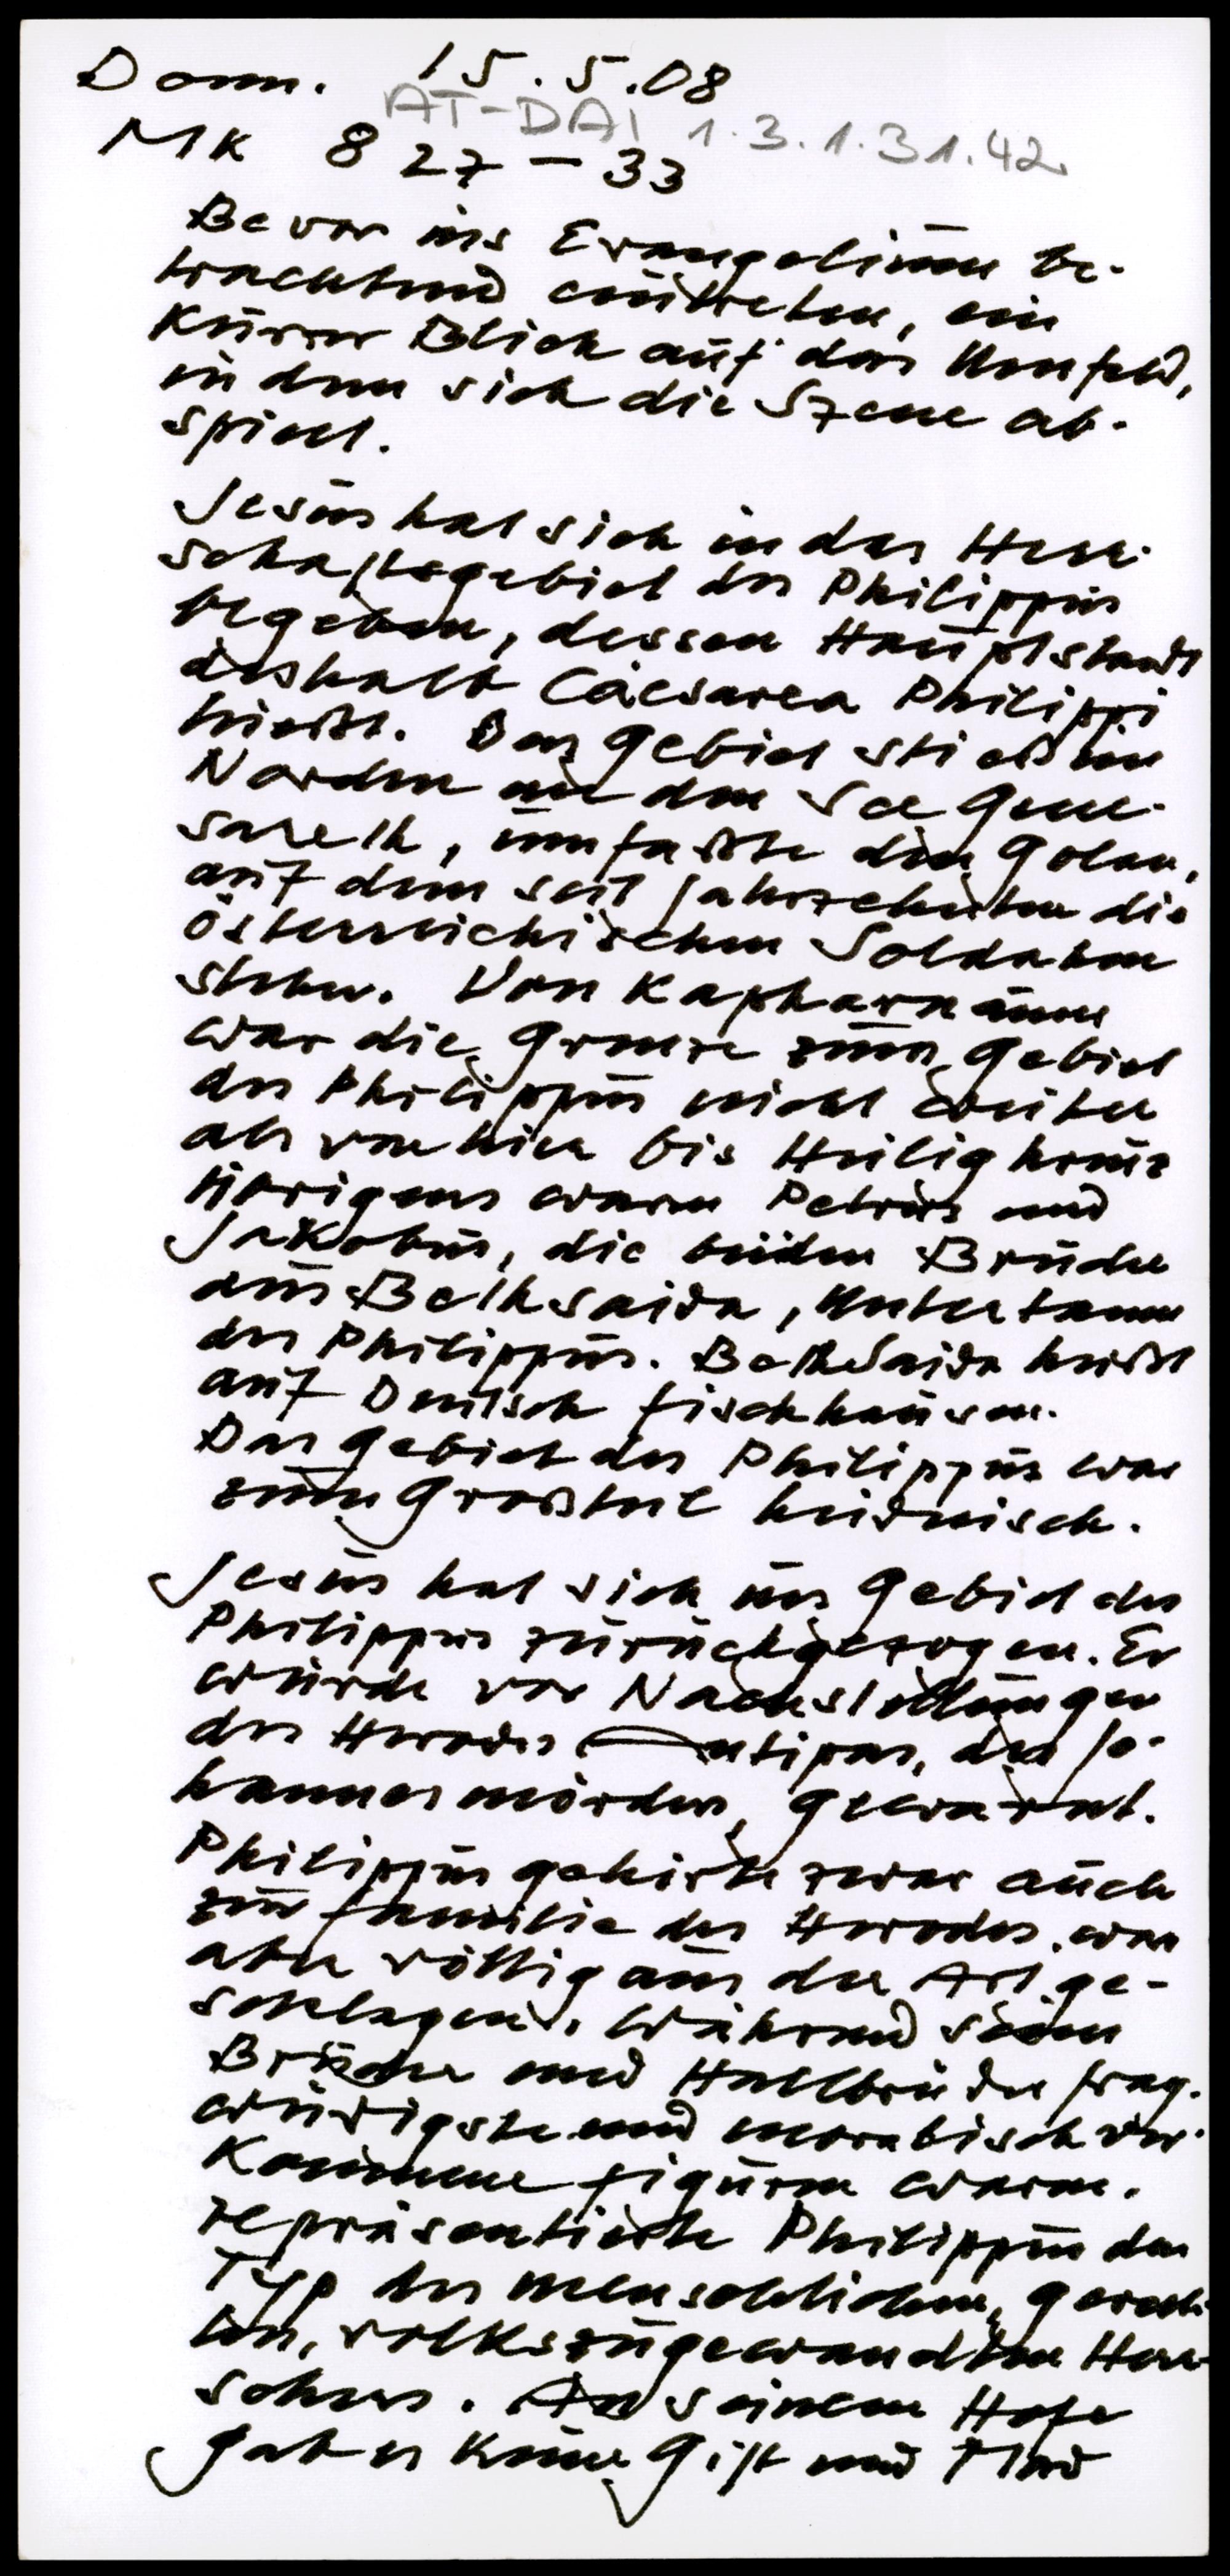 Donn. 15.5.08
AT-DAI 1.3.1.31.42
MK 8 27-33
Bevor ins Evangelium be-
trachtend eintreten, ein
kurzer Blick auf das Umfeld,
in dem sich die Szene ab-
spielt.
Jesus hat sich in das Herr-
schaftsgebiet des Philippus
begeben, dessen Hauptstadt
deshalb Cäesarea Philippi
heißt. Das Gebiet stieß im
Norden an den See Gene-
sareth, umfaßte den Golan,
auf dem seit Jahrzehnten die
österreichischen Soldaten
stehen. Von Kapharnaum
war die Grenze zum Gebiet
des Philippus nicht weiter
als von hier bis Heiligkreuz
Übrigens waren Petrus und
Jakobus, die beiden Brüder
aus Bethsaida, Untertanen
des Philippus. BethSaida heißt
auf Deutsch Fischhausen.
Das Gebiet des Philippus war
zum Großteil heidnisch.
Jesus hat sich ins Gebiet des
Philippus zurückgezogen. Er
wurde vor Nachstellungen
des Herodes Antipas, des Jo-
hannesmörders, gewarnt.
Philippus gehörte zwar auch
zur Familie des Herodes, war
aber völlig aus der Art ge-
schlagen. Während seine
Brüder und Halbbrüder frag-
würdigste und moralisch ver-
kommene Figuren waren,
repräsentierte Philippus den
Typ des menschlichen, gerech-
ten, volkszugewandten Herr-
schers. An seinem Hofe
gab es keine Gift und Mord